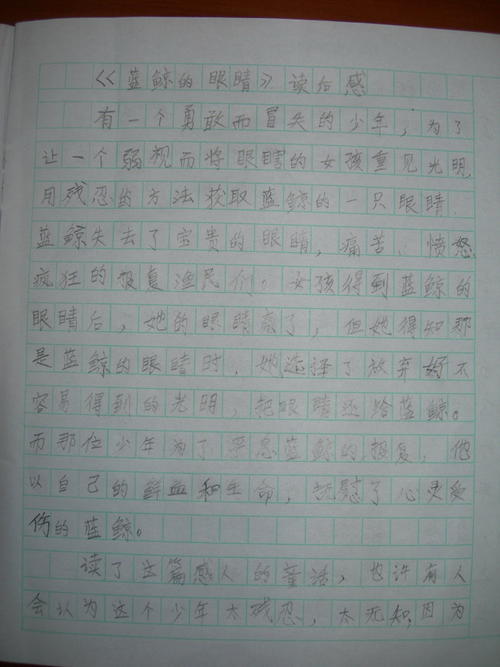 《蓝鲸的眼睛》读后感
有一个勇敢而冒失的少年，为了
让一个弱视而将眼瞎的女孩重见光明，
用残忍的方法获取蓝鲸的一只眼睛．
蓝鲸失去了宝贵的眼睛，痛苦、愤怒，
疯狂的报复渔民们。女孩得到蓝鲸的
眼睛后，她的眼睛亮了，但她得知那
是蓝鲸的眼睛时，她选择了放弃好不
容易得到的光明，把眼睛还给蓝鲸。
而那位少年为了平息蓝鲸的报复，他
以自己的鲜血和生命，抚慰了心灵受
伤的蓝鲸。
读了这篇感人的童话，也许有人
会认为这个少年太残忍，太无知，因为